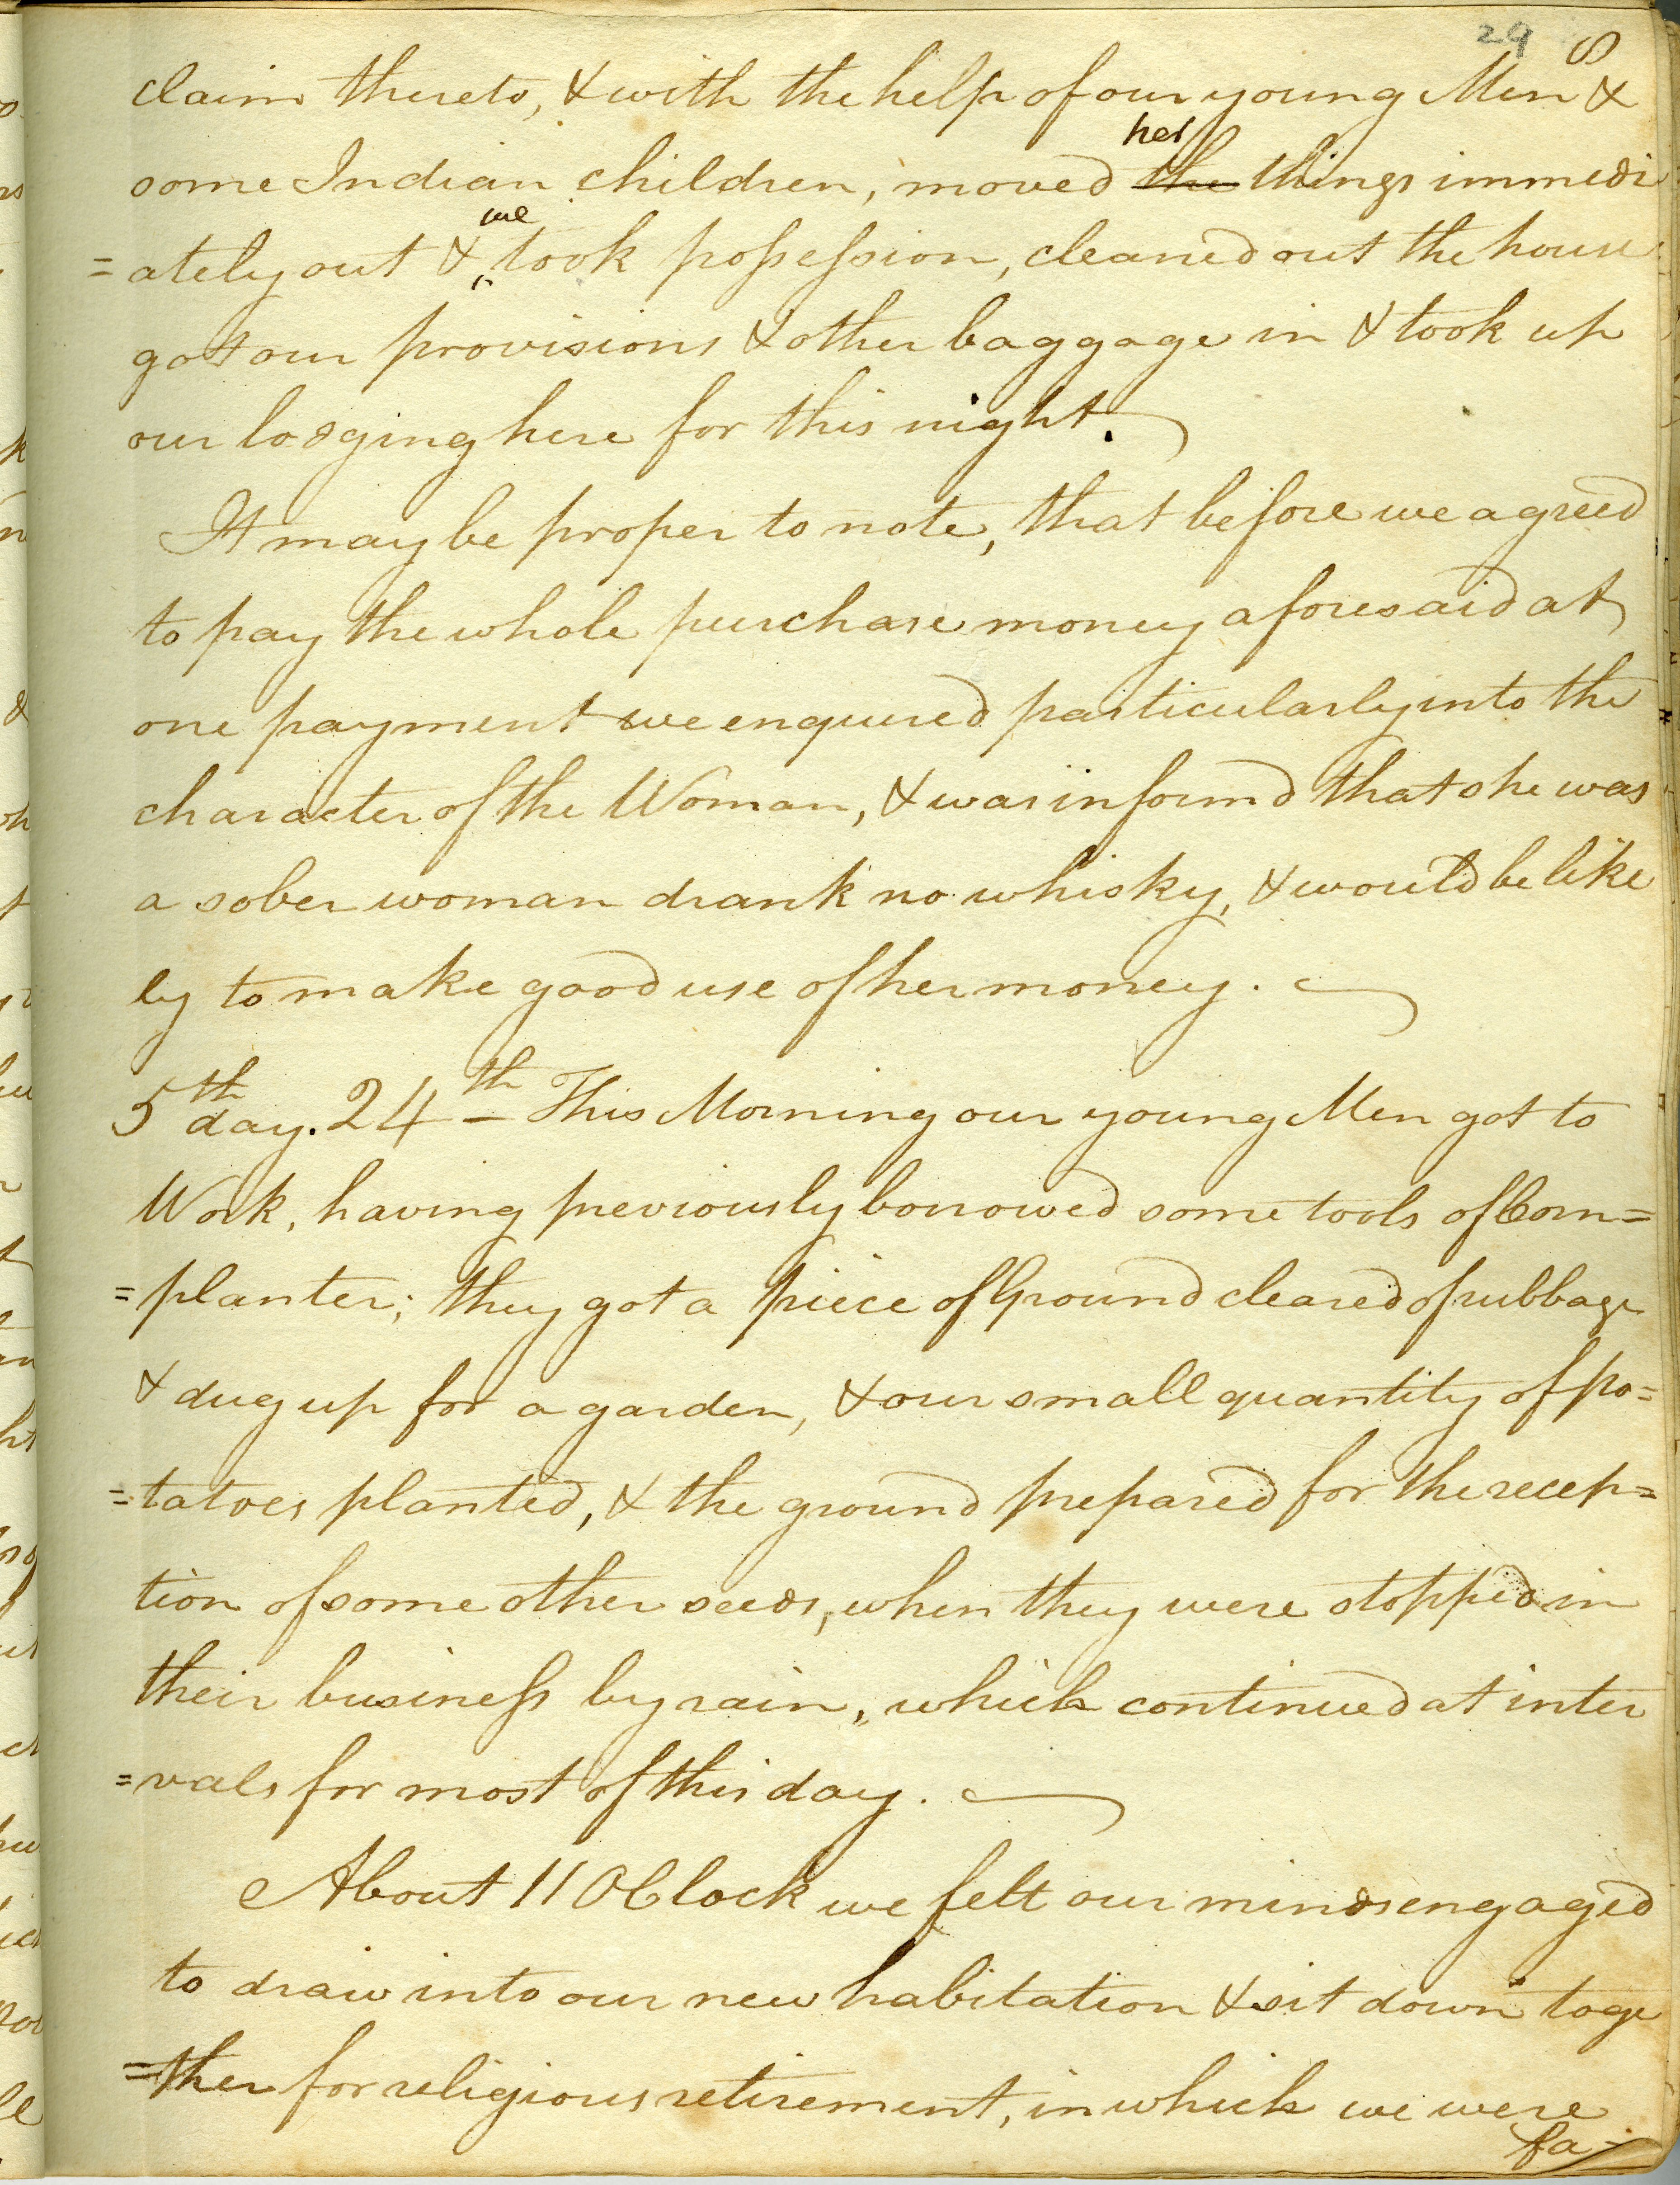 29 8
claim thereto, & with the help of our young Men &
her
some Indian children, moved the things immedi
we
=ately out & took possession, cleaned out the house
got our provisions & other baggage in & took up
our lodging here for this night.
It may be proper to note, that before we agreed
to pay the whole purchase money aforesaid at
one payment we enquired particularly into the
character of the Woman, & was inform'd that she was
a sober woman drank no whisky, & would be like
ly to make good use of her money.
5th day. 24th - This Morning our young Men got to
Work, having previously borrowed some tools of Corn=
=planter; they got a piece of Ground cleared of rubbage
& dug up for a garden, & our small quantity of po=
=tatoes planted, & the ground prepared for the recep=
tion of some other seeds, when they were stopped in
their business by rain, which continued at inter
=vals for most of this day.
About 11 OClock we felt our minds engaged
to draw into our new habitation & sit down toge
=ther for religious retirement, in which we were
fa=